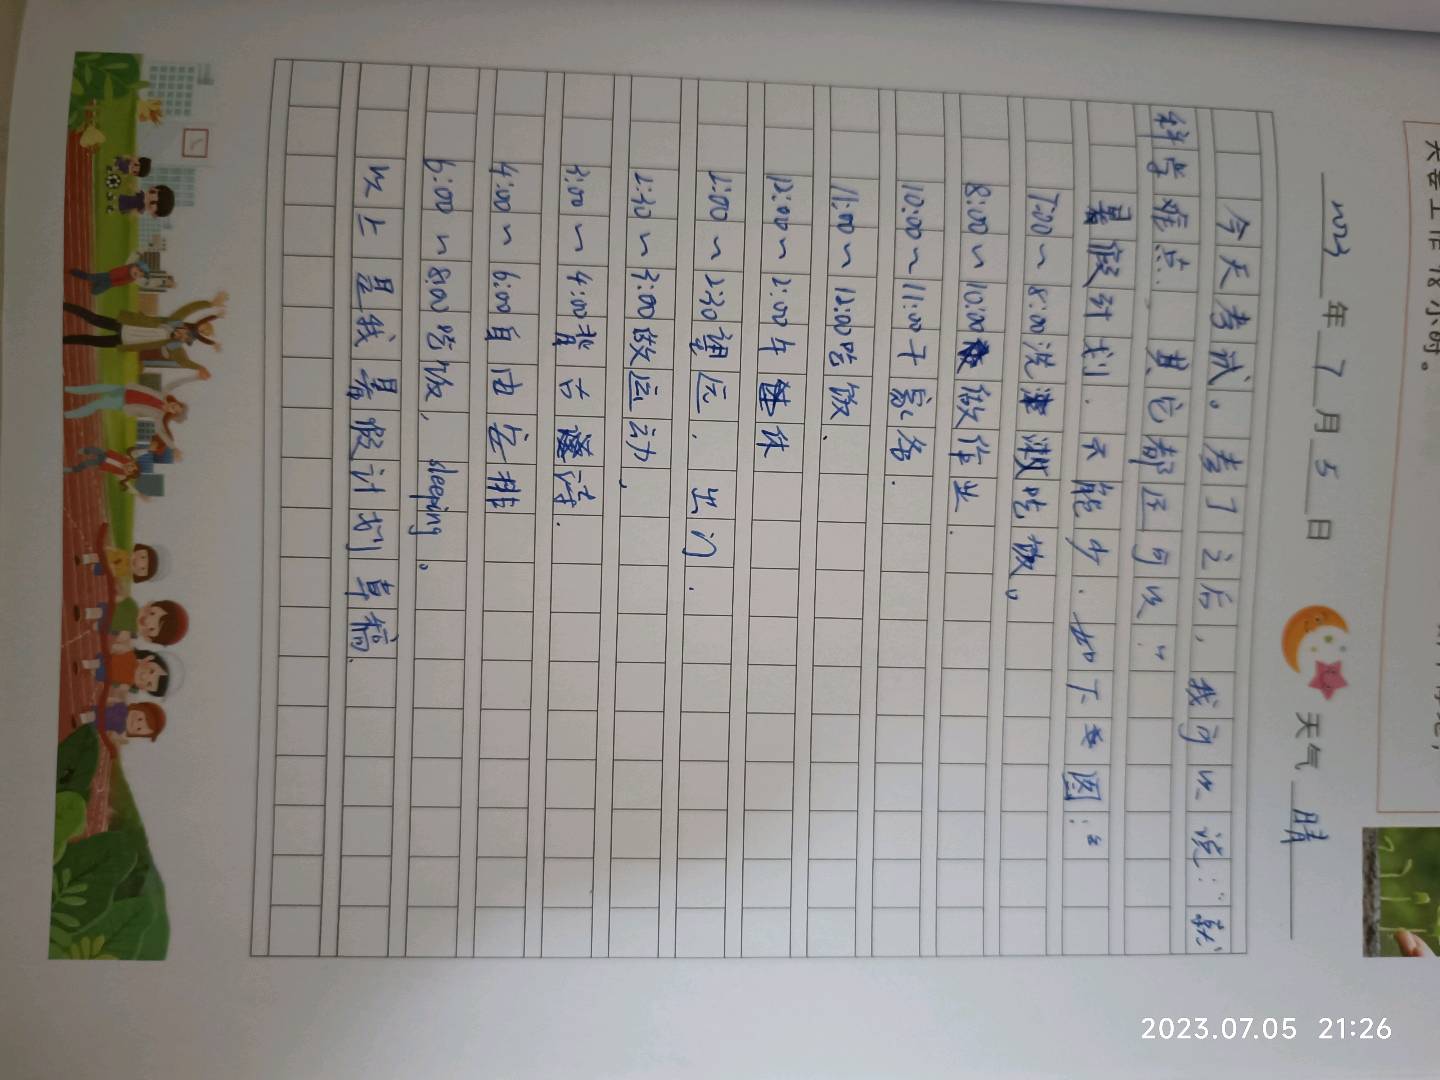 2023年7月5日 天气 晴
今天考试。考了之后，我可以说："就
科学难点，其它都还可以."
暑假计划.不能少.如下图："
7:00~8:00洗漱吃饭。
8:00~10:00做作业.
10:00~11:00干家务.
11:00~12:00吃饭.
12:00~2:00午休
2:00~2:30望远.出门.
2:30~3:00做运动,
3:00~4:00背古诗.
4:00~6:00自由安排
6:00~8:00吃饭,sleeping。
以上是我暑假计划草稿.
2023.07.05 21:26